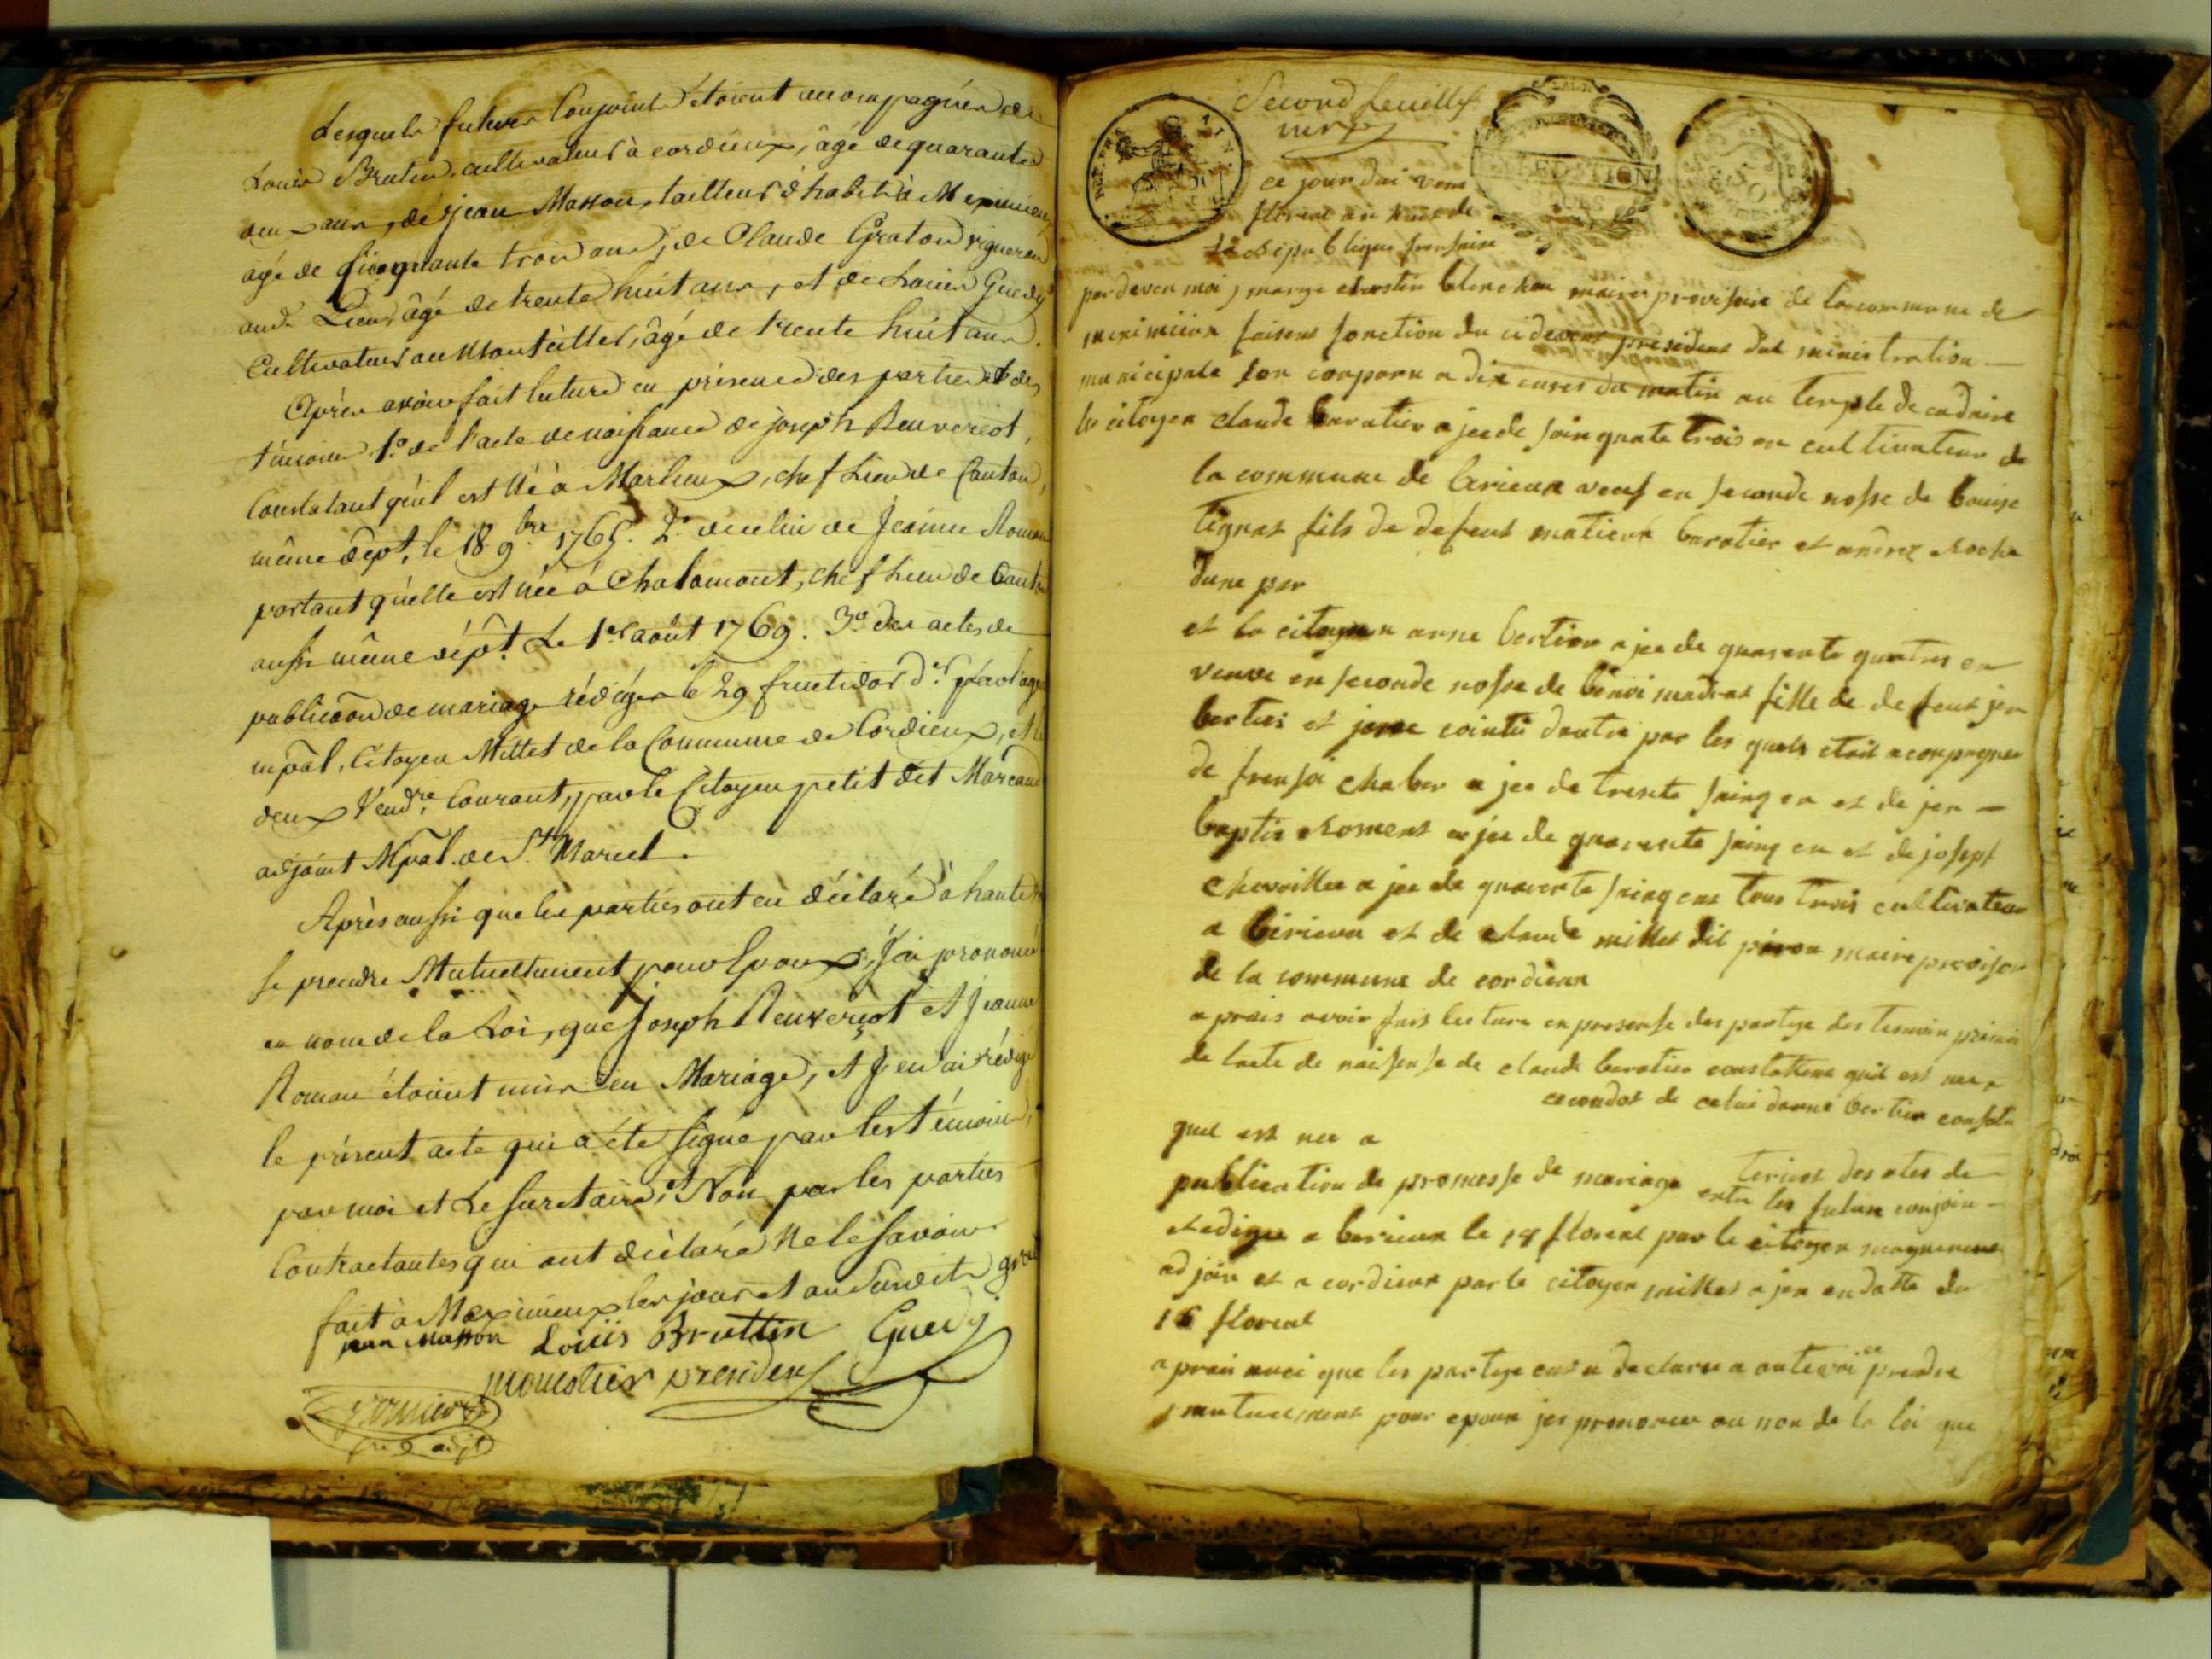 Lesquels futurs Conjoints étoient accompagnés de
Louis Brutin, cultivateur à cordieux, âgé de quarante
deux ans, de jean Masson, tailleur d'habits à Meximieux
âgé de Cinquante trois ans, de Claude Graton vigneron
aud. Lieu, âgé de trente huit ans, et de Louis Guedy
Cultivateur au Montellier, âgé de trente huit ans.
Après avoir fait lecture en présence des parties et des
témoins 1.º de l'acte de naissance de joseph Reuverçot,
Constatant qu'il est Né à Marlieux, chef Lieu de Canton,
même dépt, le 18 9.bre 1765. 2.º de celui de Jeanne Roman
portant qu'elle est née à Chalamont, chef Lieu de Canton
aussi même dépt. Le 1er août 1769. 3.º des actes de
publicãon de mariage rédigés le 29 fructidor d.er par l'agent
mpãl, Citoyen Millet de la Commune de Cordieux, et le
deux Vend.re Courant, par le Citoyen petit dit Marcand
adjoint Mpal. de St. Marcel.
Après aussi que les parties ont eu déclaré à haute
se prendre Mutuellement pour Epoux, J'ai prononcé
au nom de la Loi, que Joseph Reuverçot et Jeanne
Roman étoient unis en Mariage, et J'en ai rédigé
le présent acte qui a été signé par les témoins,
par moi et Le secretaire, et Non par les parties
Contractantes qui ont déclaré Ne le savoir
fait à Meximieux les jour et an susdits
jean Masson Louis Bruttin Guedy
monestier president
adjt
Second feuillet
ce jour dui vent
floreal an huit de
la Republique fransaise
par deven moi marge blanchon maire provisoire de la commune de
meximiian faisent fonction du ci devent president dad ministration
municipale son conparu a dix eures du matin au temple de cadaire
le citoyen claude baratier a jee de sainquate trois an cultivateur de
la commune de birieux veuf en seconde nosse de bouise
tignat fils de defeut matieux baratier et andrez Roche
dune par
et la citoyen anne bertier a jee de quarente quatres en
veuve en seconde nosse de benoi madras fille de defeut jen
bertier et jene cointi dautre par les quels etait aconpagnee
de fransoi chaber a jee de trente sainq en et de jen
baptis Roment a jee de quarente sainq en et de josept
chevaillier a jee de quarente sainq ens tous trois cultivateur
a birieux et de claude millet dit piron maire provisoir
de la commune de cordieux
a prais avoir fais lecture en presense des partye des temoin
de lacte de naisense de claude baratier constatent quil est nee a
cecondot de celui danne bertier constate
quel est nee a
tericot des ates de
publication de promesse de mariage entre les future conjoin
Redigee a birieux le 18 floreal par le citoyen
ad join et a cordieux par le citoyen millet a jen en datte du
16 floreal
a prais auci que les partye ont a declaree a aute voi ce prendre
mutuelment pour epoux jes prononcer au non de la loi que